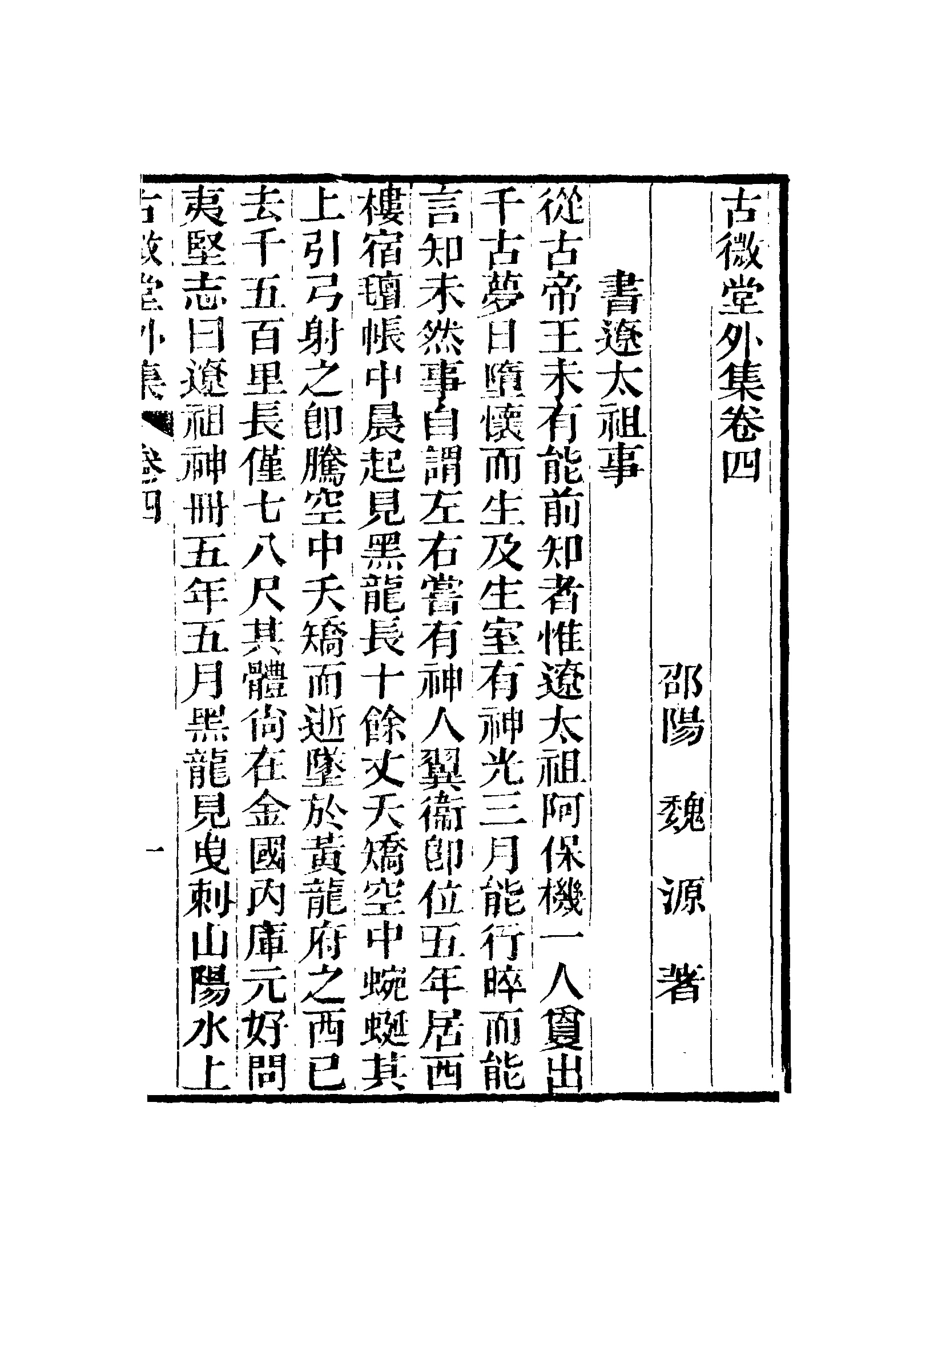 古微堂外集卷四
邵陽 魏 源 著
書遼太祖事
從古帝王未有能前知者惟遼太祖阿保機一人敻出
千古夢日墮懷而生及生室有神光三月能行晬而能
言知未然事自謂左右嘗有神人翼衞卽位五年居西
樓宿氊帳中晨起見黑龍長十餘丈夭矯空中蜿蜒其
上引弓射之卽騰空中夭矯而逝墜於黃龍府之西已
去千五百里長僅七八尺其體尙在金國內庫元好問
夷堅志曰遼祖神冊五年五月黑龍見曳刺山陽水上
古微堂外集 卷四 一